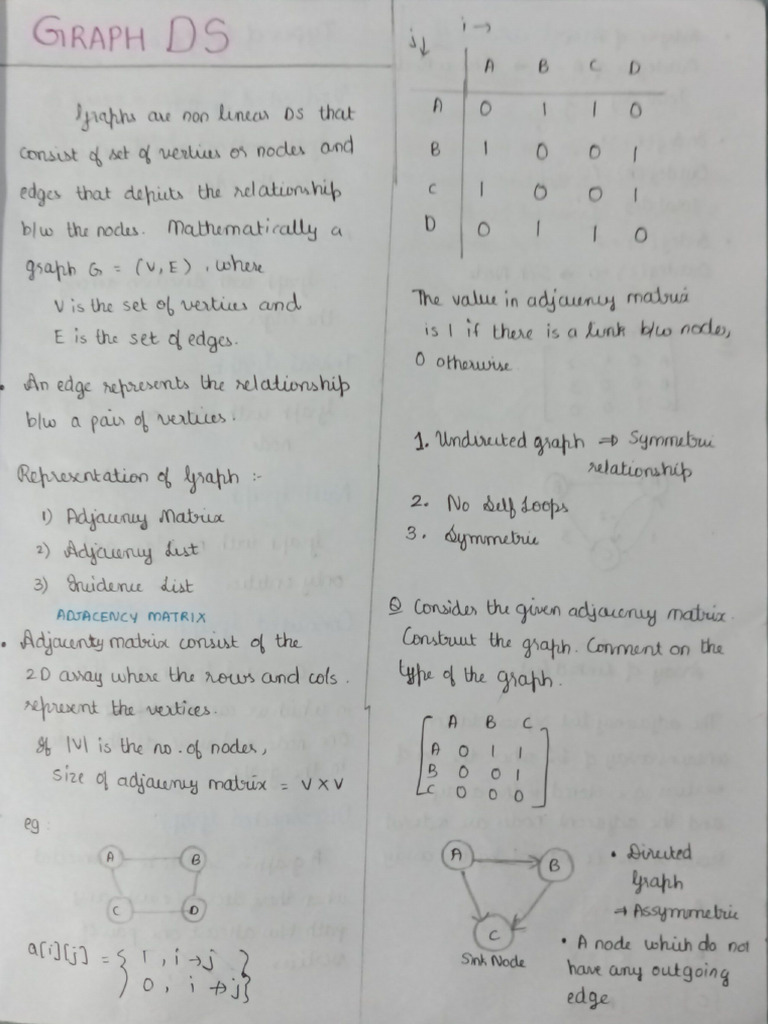 GRAPH DS
Graphs are non linear DS that
consist of set of vertices or nodes and
edges that depicts the relationship
b/w the nodes. Mathematically a
graph G = (V, E), where
V is the set of vertices and
E is the set of edges.
• An edge represents the relationship
b/w a pair of vertices.
Representation of Graph :-
1) Adjacency Matrix
2) Adjacency List
3) Incidence List
ADJACENCY MATRIX
• Adjacenty matrix consist of the
2D array where the rows and cols.
represent the vertices.
If |V| is the no. of nodes,
size of adjacency matrix = V x V
eg
A B
C D
a[i][j] = { 1, i → j }
{ 0, i ↛ j }
i →
j↓
A B C D
A 0 1 1 0
B 1 0 0 1
C 1 0 0 1
D 0 1 1 0
The value in adjacency matrix
is 1 if there is a link b/w nodes,
0 otherwise.
1. Undirected graph ⇒ Symmetric
relationship
2. No Self Loops
3. Symmetric
Q Consider the given adjacency matrix.
Construct the graph. Comment on the
type of the graph.
A B C
A 0 1 1
B 0 0 1
C 0 0 0
A
B
C
Sink Node
• Directed
Graph
→ Assymmetric
• A node which do not
have any outgoing
edge